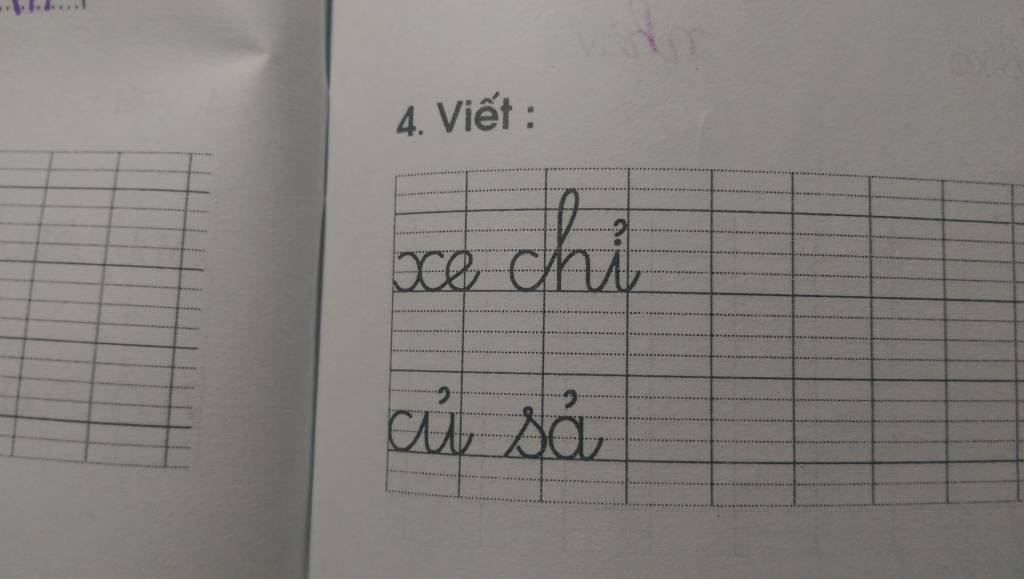 4. Viết :
xe chỉ
củ sả